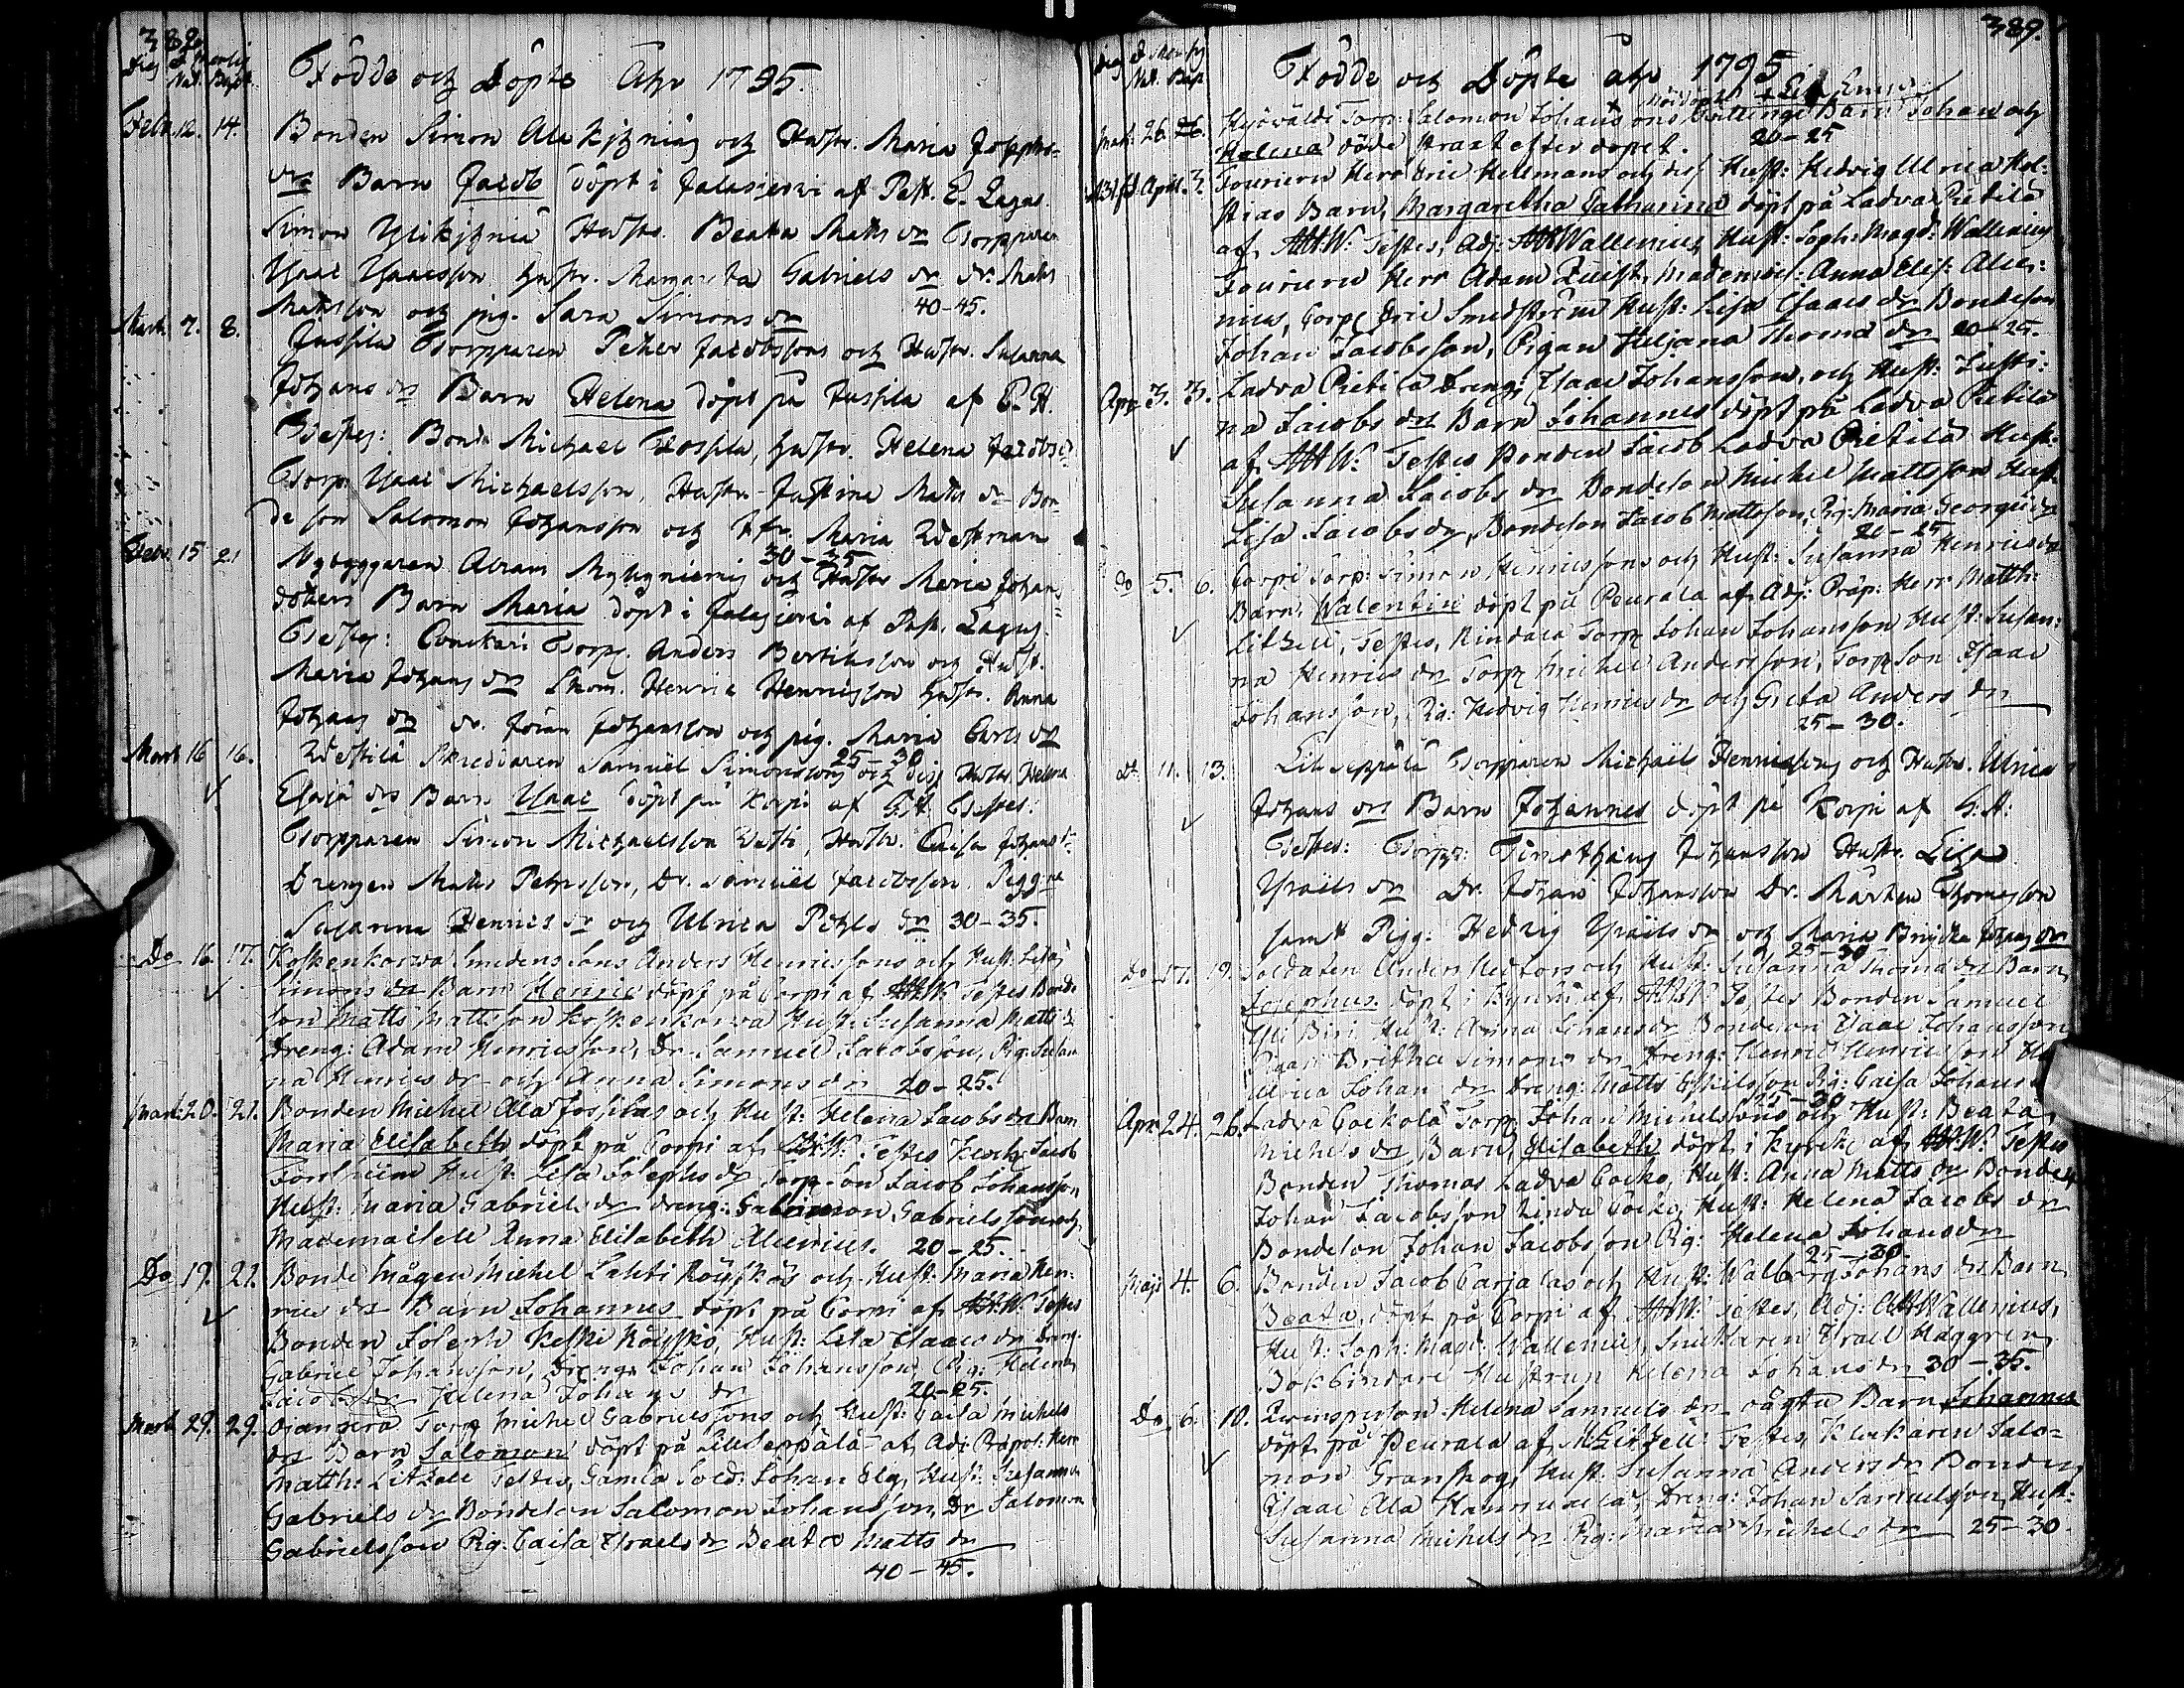 388
Dies & Mensis
Nat. Bapt.
Födde och Döpte Åhr 1795.
Febr. 12. 14. Bonden Simon Ala och Hustr. Maria Josephs
dr Barn Jacob döpt i Jalasjerwi af Past. E. Lagus.
Simon Hustr. Beata Matts dr Torpparen
Isaac Isaacsson hustr. Margareta Gabriels dr dr. Matts
Mattsson och pig. Sara Simons dr 40-45.
Mart. 7. 8. Jussila Torpparen Peter Jacobssons och Hustr. Susanna
Johans dr Barn Helena döpt på Jussila af
Testes: Bond. Michael hustr. Helena Jacobs d.
Torp. Isaac Michaelsson, Hustr. Justina Matts dr Bon-
de son Salomon Johansson och Jfr. Maria Westman
30-35
Febr. 15 21 Nybyggaren Abram och Hustr Maria Johans
dotters Barn Maria döpt i Jalasjerwi af Past. Lagus.
Testes: Torp. Anders Bertilsson och Hustr.
Maria Johans dr Henric Henricsson hustr. Anna
Johans dr dr. Jöran Johansson och pig. Maria Carls dr
25-30
Mart 16 16. Skreddaren Samuel Simonssons och dess Hustr. Helena
Esajæ dr Barn Isaac döpt på Korpi af Testes:
Torpparen Simon Michaelsson Hustr. Caisa Johans dr
Drengen Matts Petersson, Dr. Samuel Jacobsson. Piggne
Susanna Henrics dr och Ulrica Pehrs dr 30-35.
Do 16. 17. Koskenkorwa Smedens Sons Anders Henricssons och Hust: Lisa
Simons dr Barn Henric döpt på Corpi af AHW. Testes Bonde
son Matts Mattsson Koskenkorva Hust: Susanna Matts dr
Dreng: Adam Henricsson, Dr. Samuel Jacobsson, Pig: Susan
na Henrics dr och Anna Simons dr 20-25.
Mart: 20. 21. Bonden Michel Ala Jossilas och Hust: Helena Jacobs dr Barn
Maria Elisabeth döpt på Corpi af AHW. Testes Jacob
Hust: Lisa Josephs dr Torp. son Jacob Johansson
Hust: Maria Gabriels dr dreng: Gabrielsson och
Mademoiselle Anna Elisabeth Alcenius. 20-25.
Do 19. 21. Bonde Mågen Michel Lahti och Hust: Maria Hen-
rics dr Barn Johannes döpt på Corpi af AHW. Testes
Bonden Joseph Keski Hust: Lisa Isaacs dr Dreng.
Gabriel Johansson, Dreng: Johan Johansson, Pig: Helena
Jacobs dr Helena Johans dr 20-25.
Mart. 29. 29. Torp. Michel Gabrielssons och Hust: Caisa Michels
dr Barn Salomon döpt på Lillseppälä af Adj. Præpos: Herr
Matth: Litzell Testes, Gamla Sold: Johan Elg, Hust: Susanna
Gabriels dr Bondeson Salomon Johansson, Dr Salomon
Gabrielsson Pig: Caisa Israels dr Beata Matts dr
40-45.
389.
Dies & Mensis
Nat. Bapt.
Födde och Döpte åhr 1795
Mart: 26. 26. Torp: Salomon Johanssons Tvillinge Barn Johan och
Helena döde straxt efter döpet. 20-25
M31 fd April. 3. Fourieren Herr Eric Helemans och dess Hust: Hedvig Ulrica Hol-
stias Barn, Margaretha Catharina döpt på Ladva Pietilä
af AHW. Testes, Adj: AHWallenius, Hust: Soph: Magd: Wallenius
Fourieren Herr Adam Qwist, Mademois: Anna Elis: Alce-
nius, Corp: Eric Smedström Hust: Lisa Isaacs dr Bondeson
Johan Jacobsson, Pigan Juliana Thomæ dr 20-25.
Apr. 3. 3. Ladva Pietilä Dreng: Isaac Johansson, och Hust: Justi-
na Jacobs dr Barn Johannes döpt på Ladva Pietilä
af AHW. Testes Bonden Jacob Ladva Pietilä Hust:
Susanna Jacobs dr Bondeson Michel Mattsson Hust:
Lisa Jacobs dr, Bondeson Jacob Mattsson, Pig: Maria Georgii dr
20-25
Do 5. 6. Corpi Torp: Simon Henricssons och Hust: Susanna Henrics dr
Barn, Walentin döpt på Peurala af Adj: Præp: Herr Matth:
Litzell, Testes, Rindala Torp: Johan Johansson Hust: Susan-
na Henrics dr Torp: Michel Andersson, Torp: Son Isaac
Johansson, Pig: Hedvig Henrics dr och Greta Anders dr
25-30.
Do 11. 13. Lillseppälä Torpparen Michaël Henricssons och Hustr. Ulrica
Johans dr Barn Johannes döpt på Korpi af
Testes: Torp: Timothæus Johansson Hustr. Lisa
Israëls dr Dr. Johan Johansson Dr. Mårten Thomasson
samt Pigg: Hedvig Israëls dr och Maria Johans dr
25-30
Do 17. 19. Soldaten Anders Hectors och Hust: Susanna Thomæ dr Barn,
Josephus döpt i Kyrkan af AHW. Testes Bonden Samuel
Yli Hust: Anna Johans dr Bondeson Isaac Johansson
Pigan Britha Simons dr Dreng: Henric Henricsson
Ulrica Johan dr Dreng: Matts Eskilsson Pig: Caisa Johans
25-30
Apr. 24. 26. Ladva Cockola Torp: Johan Michelssons och Hust: Beata
Michels dr Barn, Elisabeth döpt i Kyrcka af AHW. Testes
Bonden Thomas Ladva Cocko, Hust: Anna Matts dr Bonden
Johan Jacobsson Rinda Cocko, Hust: Helena Jacobs dr
Bondeson Johan Jacobsson Pig: Helena Johans dr
25-30.
Maji 4. 6. Bonden Jacob Carjalas och Hust: Walborg Johans dr Barn,
Beata, döpt på Corpi af AHW. Testes, Adj: AHWallenius,
Hust: Soph: Magd: Wallenius, Snickaren Israel Häggren
Bokbindare Hustrun Helena Johans dr 30-35.
Do 6. 10. Qwinsperson Helena Samuels dr oägta Barn Johannes
döpt på Peurala af MLitzell: Testes, Klockaren Salo-
mon Granskog, Hust: Susanna Anders dr Bonden
Isaac Ala Hannuxela, Dreng: Johan Samuelsson, Hust:
Susanna Michels dr Pig: Maria Michels dr 25-30.